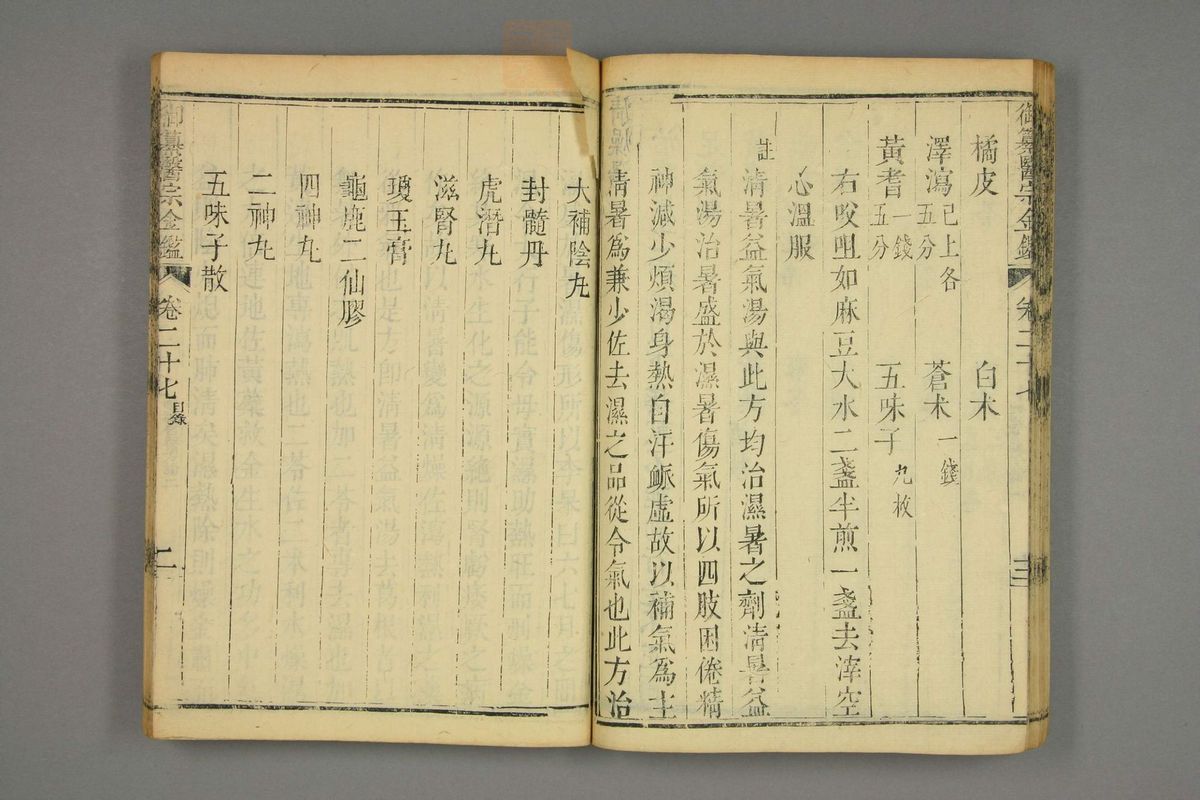 御纂醫宗金鑑 卷二十七 三
橘皮 白朮
澤瀉 已上各五分 蒼朮 一錢
黃耆 一錢五分 五味子 九枚
右㕮咀如麻豆大水二盞半煎一盞去滓空
心溫服
註 清暑益氣湯與此方均治濕暑之劑清暑益
氣湯治暑盛於濕暑傷氣所以四肢困倦精
神減少煩渴身熱自汗脈虛故以補氣爲主
清暑爲兼少佐去濕之品從令氣也此方治
大補陰丸
封髓丹
虎潛丸
滋腎丸
瓊玉膏
龜鹿二仙膠
四神丸
二神丸
五味子散
御纂醫宗金鑑 卷二十七 目錄 二